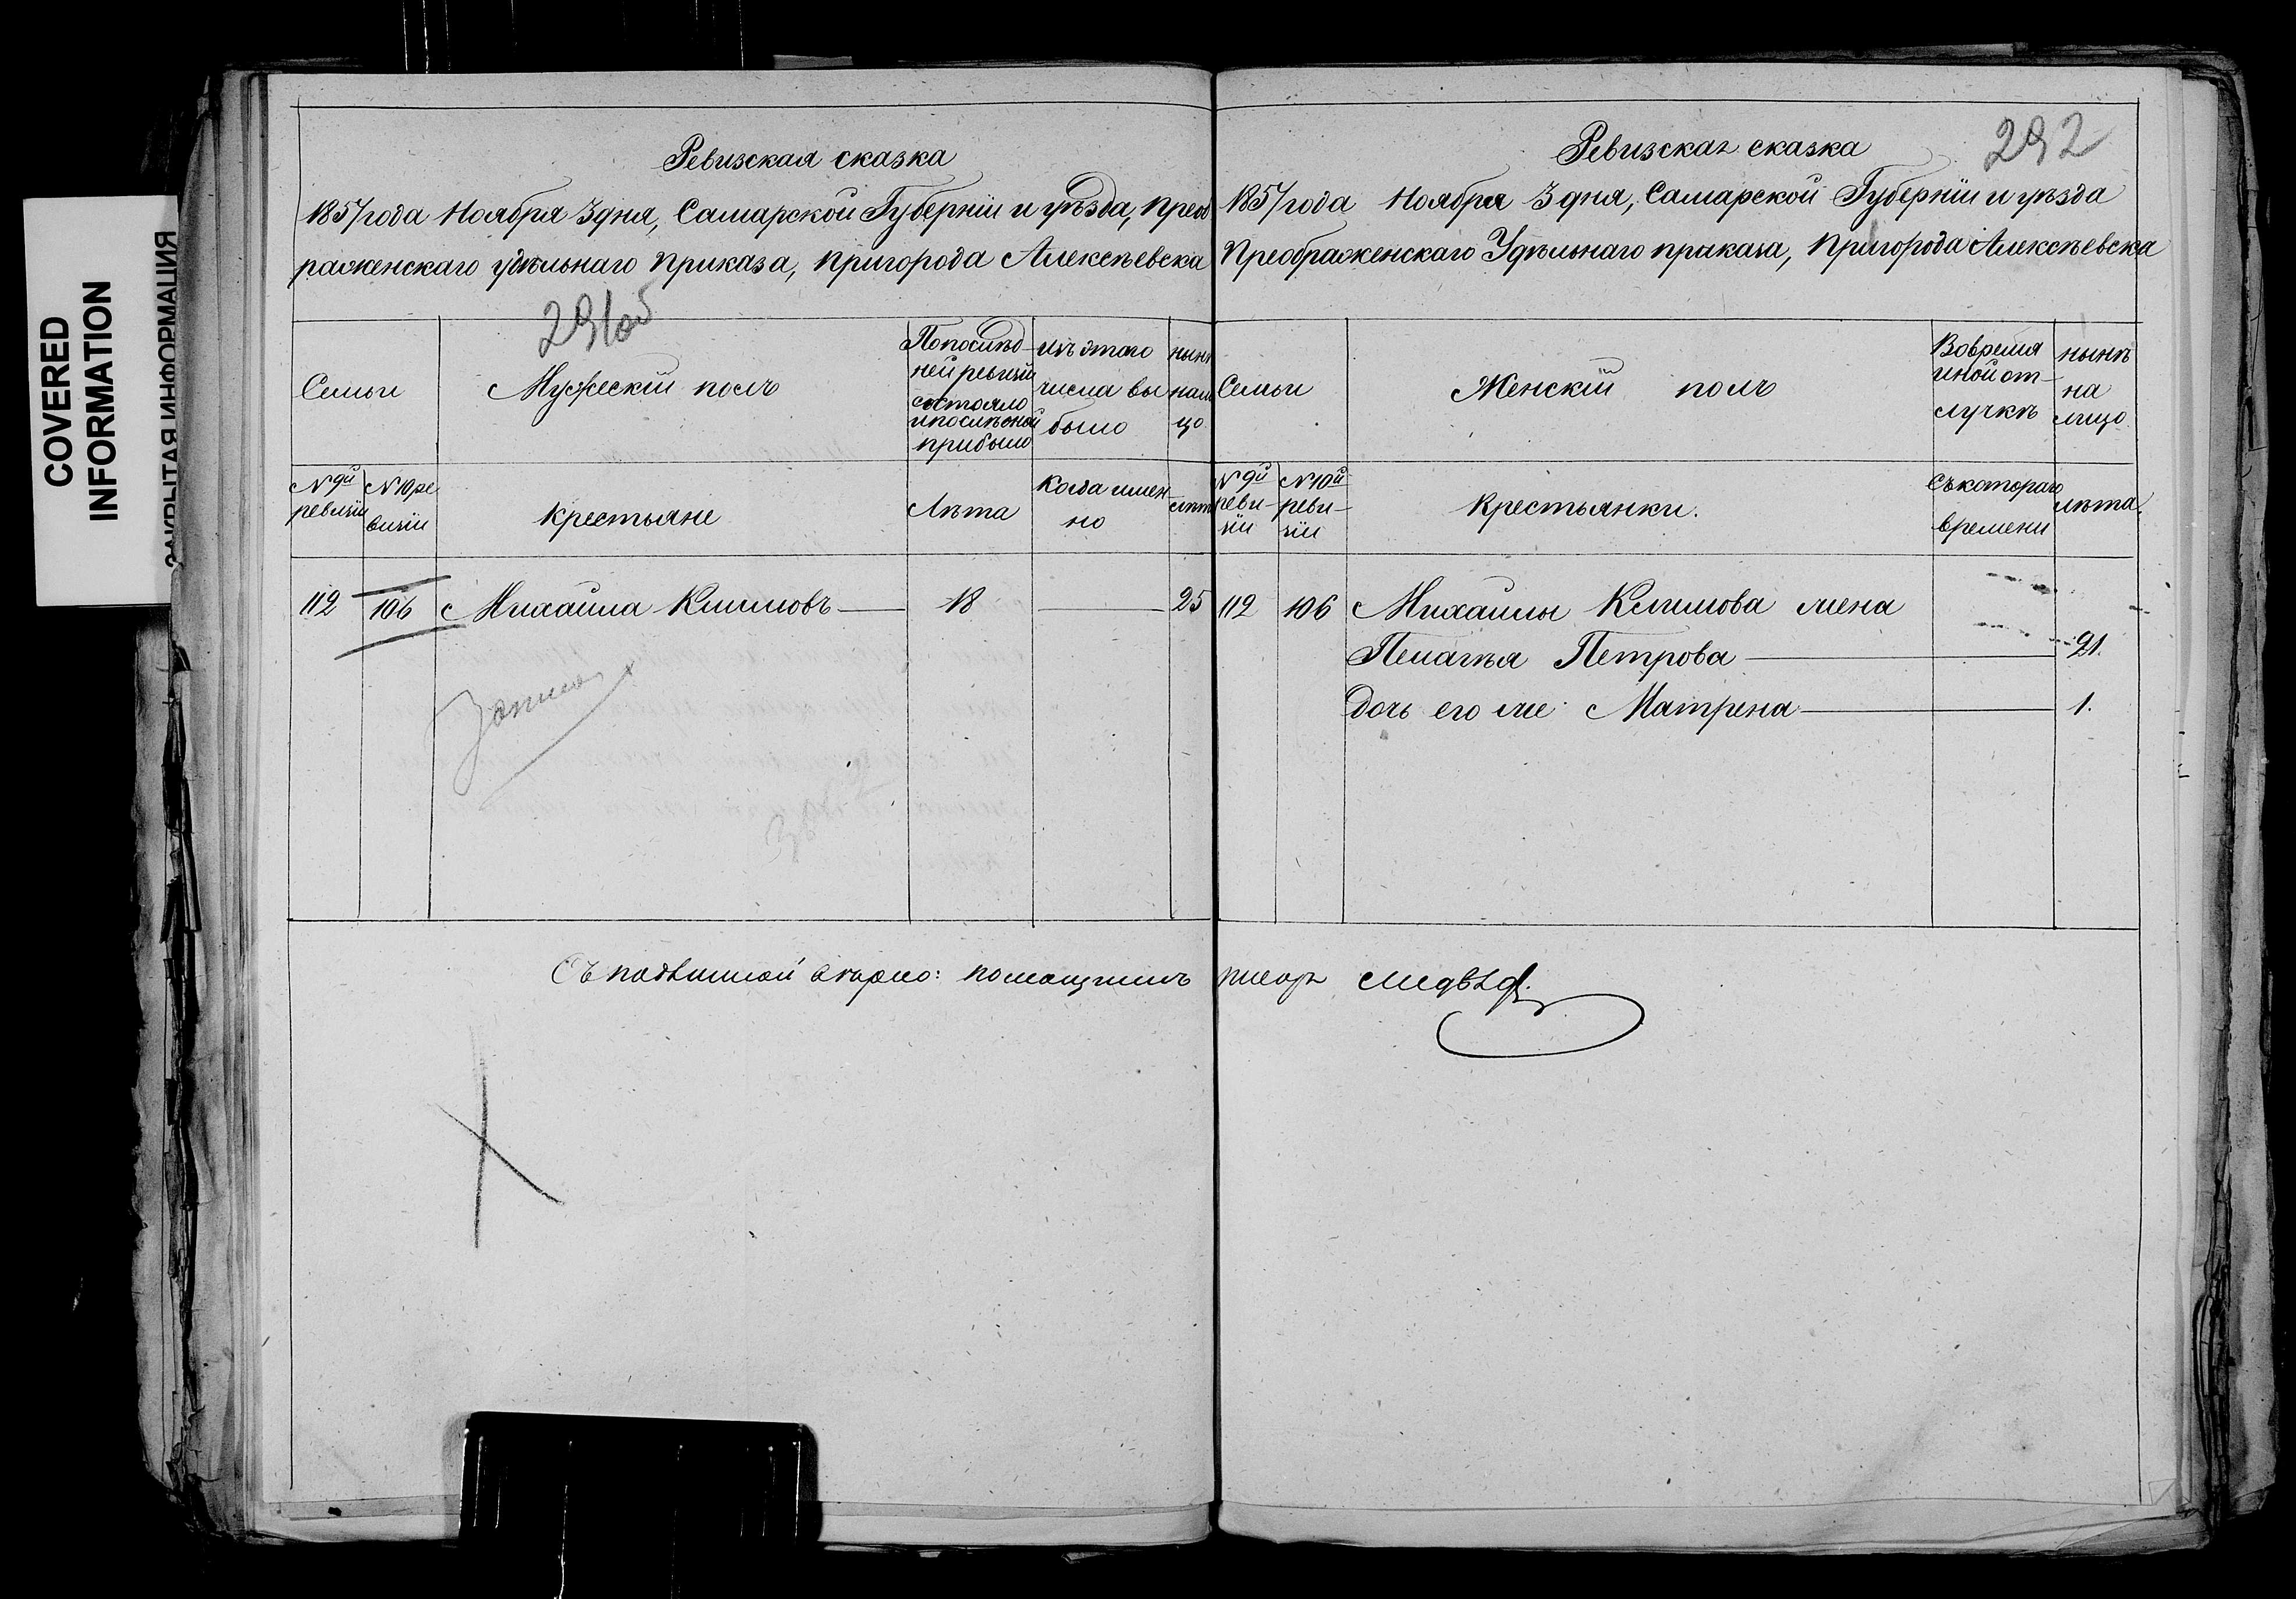 COVERED
INFORMATION
ЗАКРЫТАЯ ИНФОРМАЦИЯ
Ревизская сказка
1857 года Ноября 3 дня, Самарской Губернiи и уѣзда, Преоб
раженскаго удѣльнаго приказа, пригорода Алексѣевска
291об
Семьи
Мужескiй полъ
По послѣд-
ней ревизiи
состояло
и послѣ оной
прибыло
Изъ этого
числа вы
было
нынѣ
нали
цо
№ 9й
ревизiи
№ 10 ре
визiи
крестьяне
Лѣта
Когда имен-
но
лѣта
112 106 Михайла Климовъ 18 25
Съ подлинной вѣрно: помощникъ
Ревизская сказка
292
1857 года Ноября 3 дня, Самарской Губернiи и уѣзда
Преображенскаго Удѣльнаго приказа, Пригорода Алексѣевска
Семьи
Женскiй полъ
Во время
иной от-
лучкѣ
нынѣ
на
лицо
№ 9й
реви-
зiи
№ 10й
реви-
зiи
Крестьянки.
Съ котораго
времени
лѣта
112 106 Михайлы Климова жена
Пелагѣя Петрова 21.
дочь его же Матрена 1.
писаря